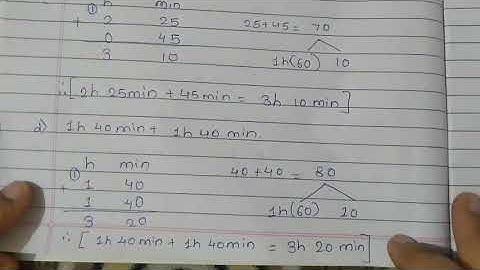 h min
① 2 25 25+45 = 70
+ 0 45 1h(60) 10
3 10
∴ [2h 25min + 45min = 3h 10 min]
d) 1h 40min + 1h 40 min.
h min
① 1 40 40+40 = 80
+ 1 40 1h(60) 20
3 20
∴ [1h 40min + 1h 40min = 3h 20 min]